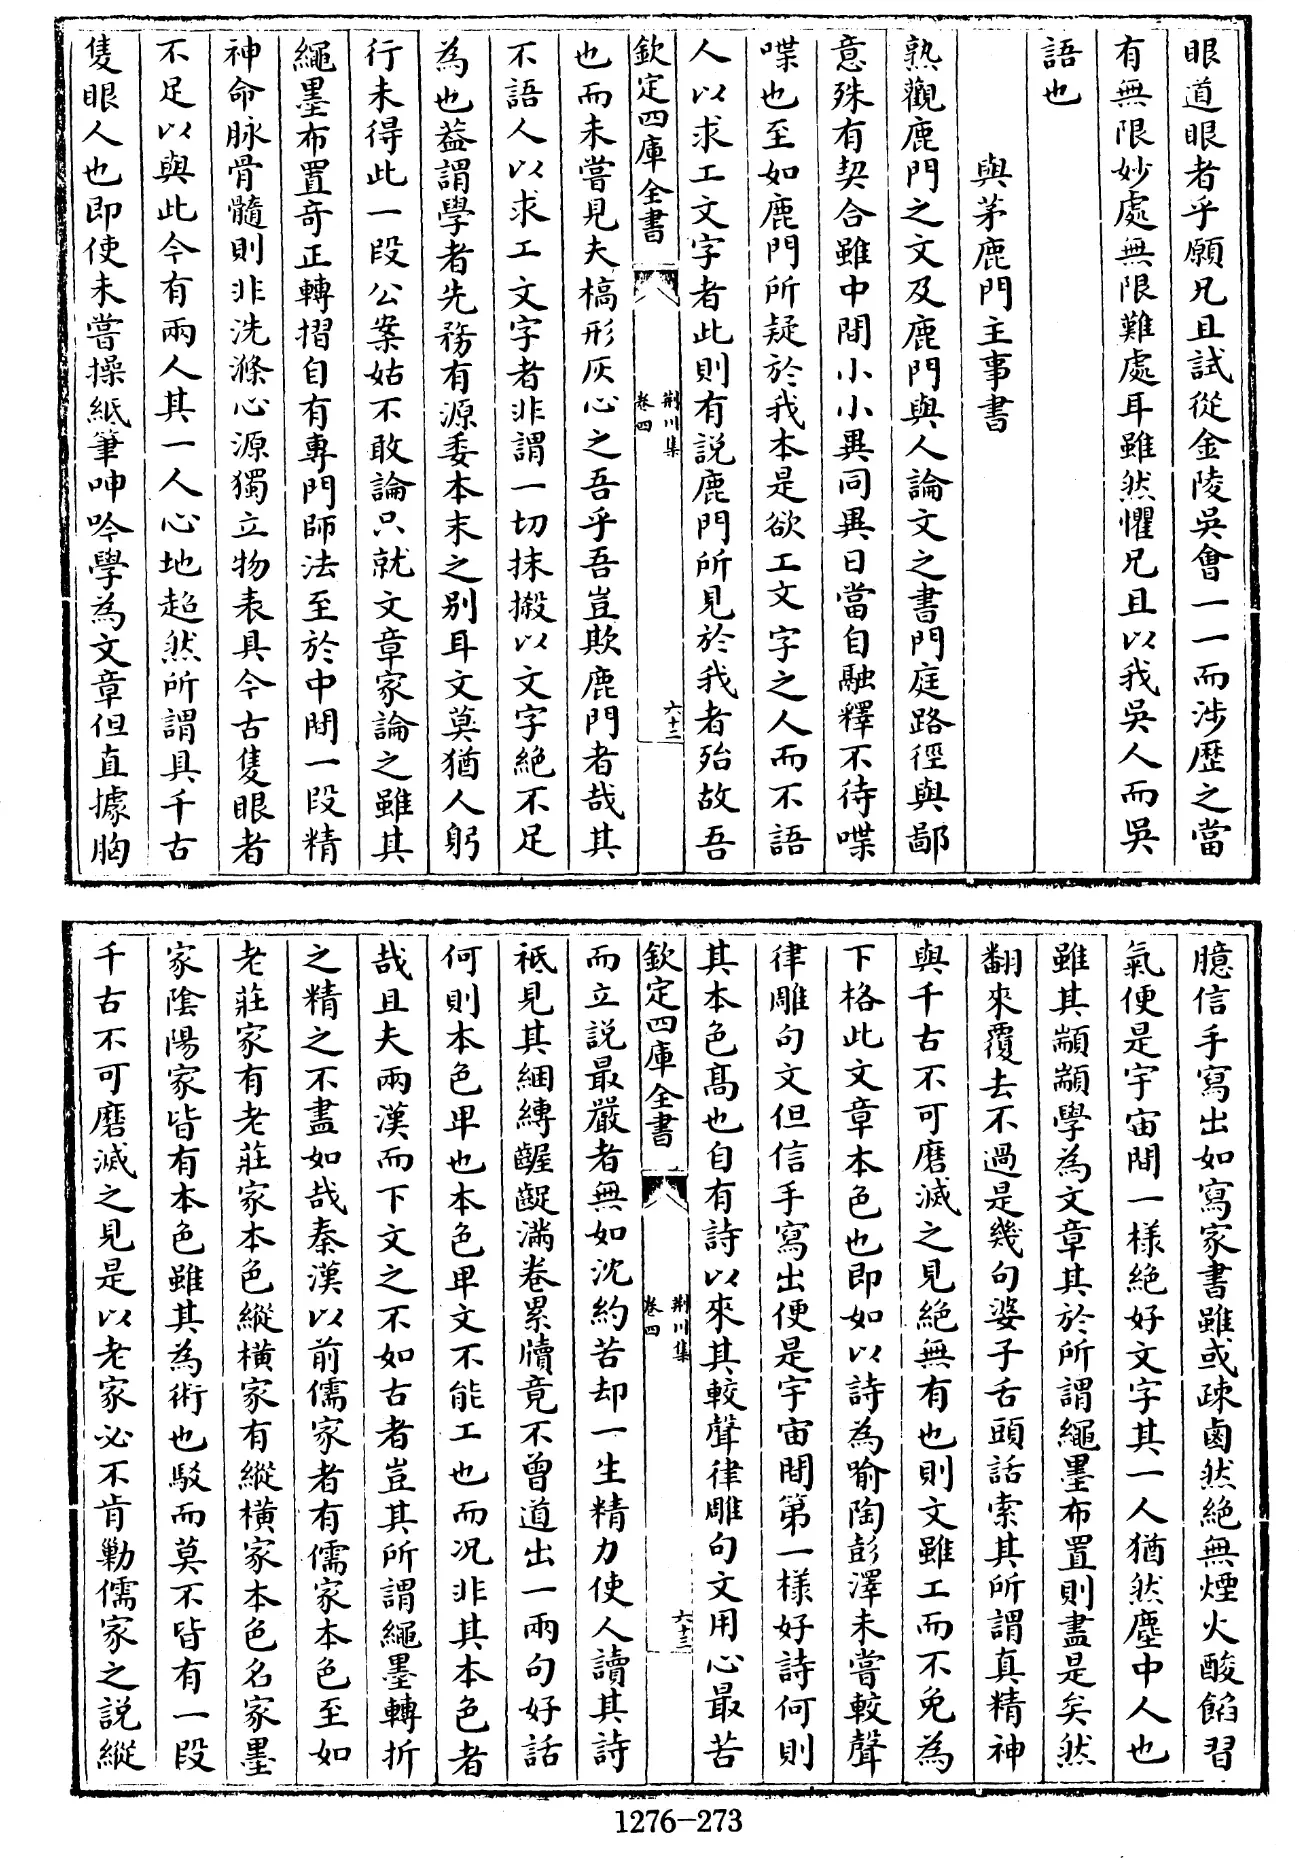 眼道眼者乎願兄且試從金陵吳會一一而涉歴之當
有無限妙處無限難處耳雖然懼兄且以我吳人而吳
語也
與茅鹿門主事書
熟觀鹿門之文及鹿門與人論文之書門庭路徑與鄙
意殊有契合雖中間小小異同異日當自融釋不待喋
喋也至如鹿門所疑於我本是欲工文字之人而不語
人以求工文字者此則有説鹿門所見於我者殆故吾
欽定四庫全書
荆川集
卷四
六十二
也而未嘗見夫槁形灰心之吾乎吾豈欺鹿門者哉其
不語人以求工文字者非謂一切抹摋以文字絶不足
為也葢謂學者先務有源委本末之别耳文莫猶人躬
行未得此一段公案姑不敢論只就文章家論之雖其
繩墨布置奇正轉摺自有專門師法至於中間一段精
神命脉骨髓則非洗滌心源獨立物表具今古隻眼者
不足以與此今有兩人其一人心地超然所謂具千古
隻眼人也即使未嘗操紙筆呻吟學為文章但直據胸
臆信手寫出如寫家書雖或疎鹵然絶無煙火酸餡習
氣便是宇宙間一様絶好文字其一人猶然塵中人也
雖其顓顓學為文章其於所謂繩墨布置則盡是矣然
翻來覆去不過是幾句婆子舌頭話索其所謂真精神
與千古不可磨滅之見絶無有也則文雖工而不免為
下格此文章本色也即如以詩為喻陶彭澤未嘗較聲
律雕句文但信手寫出便是宇宙間第一様好詩何則
其本色髙也自有詩以來其較聲律雕句文用心最苦
欽定四庫全書
荆川集
卷四
六十三
而立説最嚴者無如沈約苦却一生精力使人讀其詩
祗見其綑縛齷齪滿卷累牘竟不曾道出一兩句好話
何則本色卑也本色卑文不能工也而况非其本色者
哉且夫兩漢而下文之不如古者豈其所謂繩墨轉折
之精之不盡如哉秦漢以前儒家者有儒家本色至如
老莊家有老莊家本色縱橫家有縱橫家本色名家墨
家隂陽家皆有本色雖其為術也駁而莫不皆有一段
千古不可磨滅之見是以老家必不肯勦儒家之説縱
1276-273